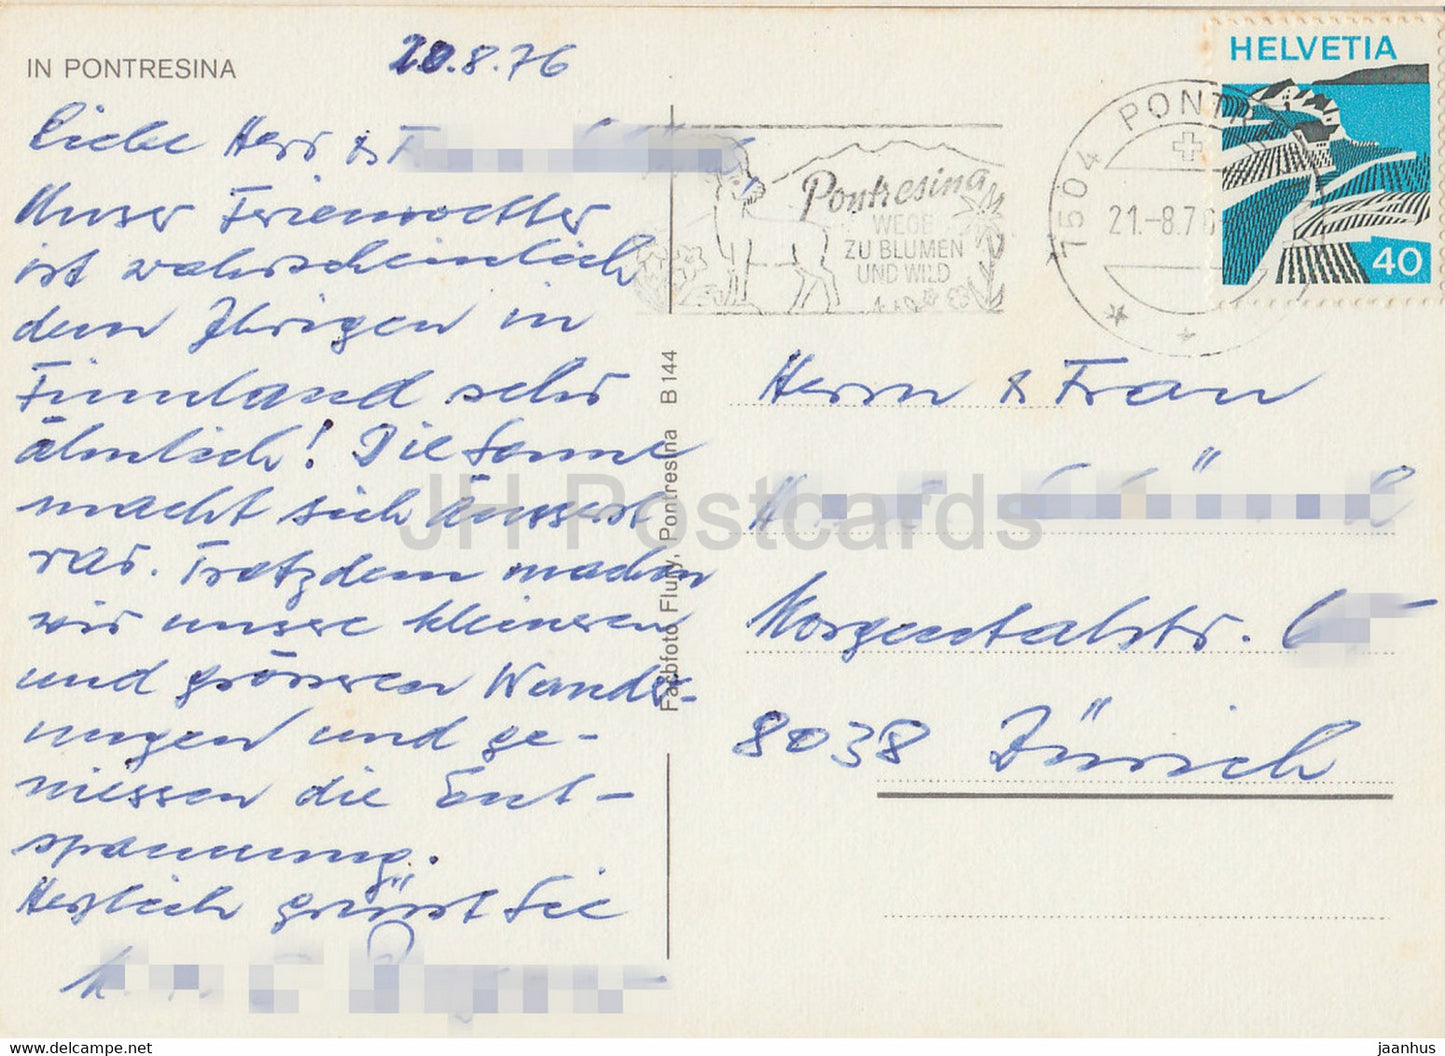 IN PONTRESINA
20.8.76
Liebe Herr & F
Unser Ferienwetter
ist wahrscheinlich
dem Ihrigen in
Finnland sehr
ähnlich! Die Sonne
macht sich äusserst
rar. Trotzdem machen
wir unsere kleineren
und grösseren Wander-
ungen und ge-
niessen die Ent-
spannung.
Herzlich grüsst Sie
Fabfoto Flury, Pontresina B 144
Pontresina
WEGE
ZU BLUMEN
UND WILD
7504 PONTRE
21.-8.76
HELVETIA
40
Herrn & Frau
Morgentalstr. 6
8038 Zürich
JH Postcards
https://www.postcards.shop/
jaanhus